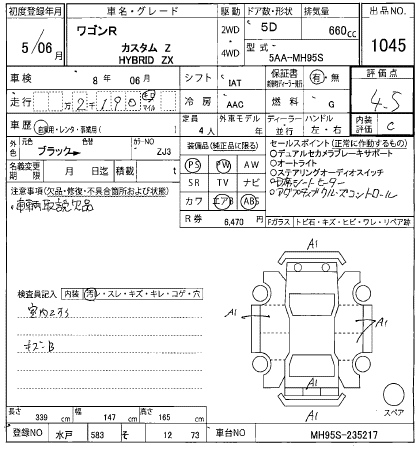 初度登録年月 車名・グレード 駆動 ドア数・形状 排気量 出品NO.
5/06月 ワゴンR カスタム Z HYBRID ZX 2WD 4WD 5D 660cc 1045
型式 5AA-MH95S
車検 8年 06月 シフト IAT 保証書 有・無 評価点 4.5
走行 冷房 AAC 燃料 G
車歴 自家用・レンタ・事業用 定員 4人 外車モデル 年 ディーラー 並行 ハンドル 左・右 内装評価 C
外色 元色 ブラック 色替 カラーNO ZJ3
名義変更期限 月 日迄 積載 t
装備品(純正品に限る)
PS PW AW
SR TV ナビ
カワ エアB ABS
R券 6,470円
セールスポイント(正常に作動するもの)
◎デュアルセカメラブレーキサポート
◎オートライト
◎ステアリングオーディオスイッチ
注意事項(欠品・修復・不具合箇所および状態)
Fガラス トビ石・キズ・ヒビ・ワレ・リペア跡
検査員記入 内装 汚レ・スレ・キズ・キレ・コゲ・穴
A1
A1
A1
A1
スペア
長さ 339cm 幅 147cm 高さ 165cm
登録NO 水戸 583 そ 12 73 車台NO MH95S-235217